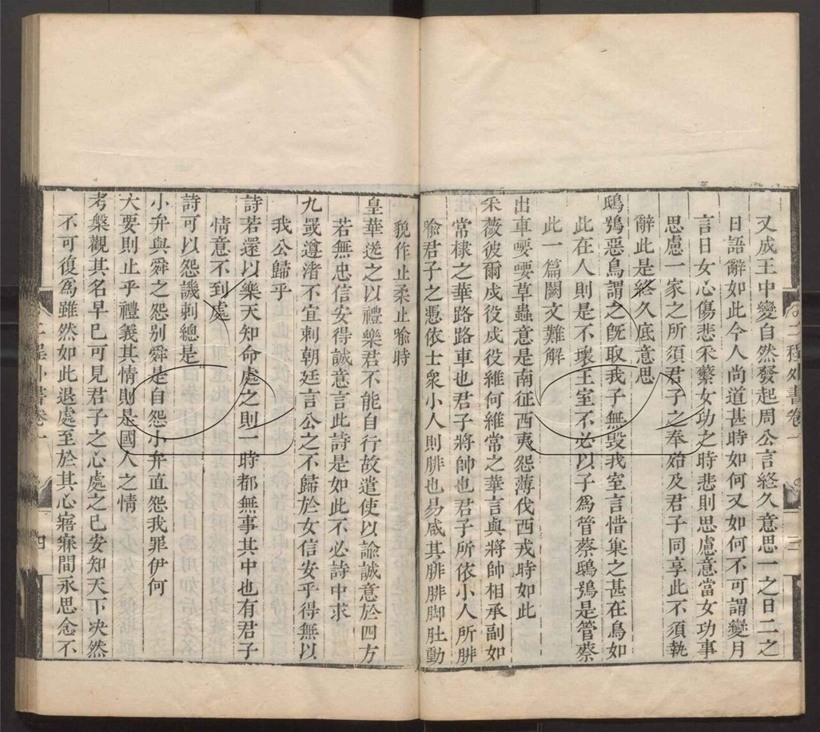 又成王中變自然發起周公言終久意思一之日二之
日語辭如此今人尚道甚時如何又如何不可謂變月
言日女心傷悲采蘩女功之時悲則思慮意當女功事
思慮一家之所須君子之奉殆及君子同享此不須執
辭此是終久底意思
鴟鴞惡鳥謂之既取我子無毀我室言惜巢之甚在鳥如
此在人則是不壞王室不必以子爲管蔡鴟鴞是管蔡
此一篇闕文難解
出車喓喓草蟲意是南征西夷怨薄伐西戎時如此
采薇彼爾戍役戍役維何維常之華言與將帥相承副如
常棣之華路路車也君子將帥也君子所依小人所腓
喻君子之憑依士衆小人則腓也易咸其腓腓脚肚動
貌作止柔止喻時
皇華送之以禮樂君不能自行故遣使以諭誠意於四方
若無忠信安得誠意言此詩是如此不必詩中求
九罭遵渚不宜刺朝廷言公之不歸於女信安乎得無以
我公歸乎
詩若還以樂天知命處之則一時都無事其中也有君子
情意不到處
詩可以怨譏刺總是
小弁與舜之怨别舜是自怨小弁直怨我罪伊何
大要則止乎禮義其情則是國人之情
考槃觀其名早已可見君子之心處之已安知天下决然
不可復爲雖然如此退處至於其心寤寐間永思念不
二程外書卷一
三
二程外書卷一
四